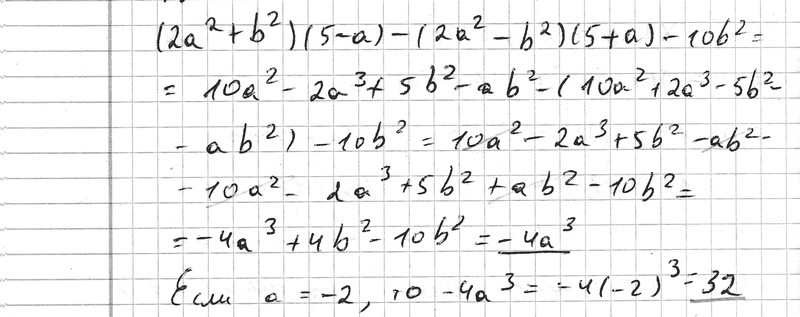 (2a²+b²)(5-a)-(2a²-b²)(5+a)-10b²=
= 10a²- 2a³+ 5b²-ab²-(10a²+2a³-5b²-
- ab²) -10b² = 10a²-2a³+5b²-ab²-
- 10a²- 2a³+5b²+ab²-10b²=
=-4a³+4b²-10b²=-4a³
Если a=-2, то -4a³=-4(-2)³=32